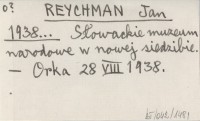 o?
REYCHMAN Jan
1938... Słowackie muzeum
narodowe w nowej siedzibie.
— Orka 28 VIII 1938.